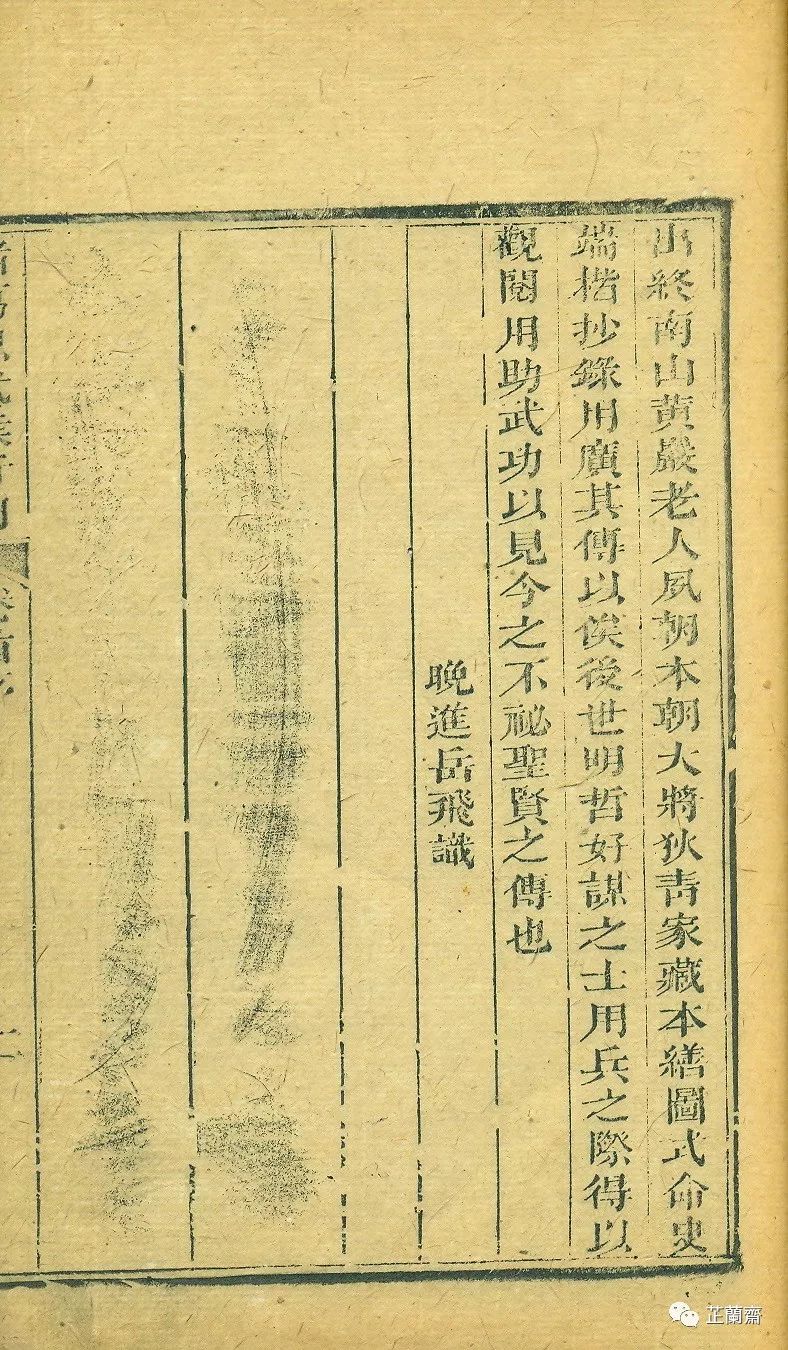 出終南山黃巖老人夙朝本朝大將狄青家藏本繕圖式命史
端楷抄錄用廣其傳以俟後世明哲好謀之士用兵之際得以
觀閱用助武功以見今之不祕聖賢之傳也
晚進岳飛識
芷蘭齋